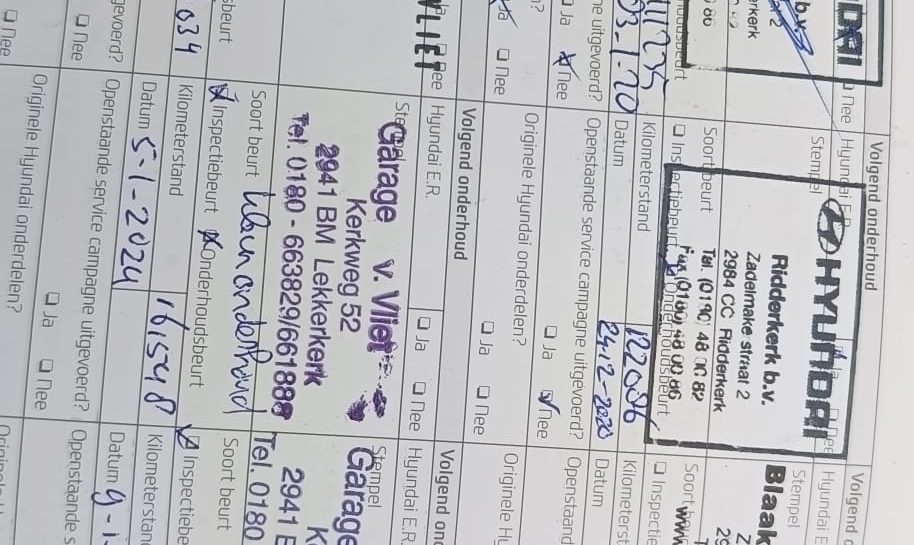 Volgend onderhoud
Hyundai E.R.
Stempel
HYUNDAI
Ridderkerk b.v.
Zadelmakerstraat 2
2984 CC Ridderkerk
Tel. (0180) 48 00 82
Fax (0180) 48 00 86
Soort beurt
Inspectiebeurt Onderhoudsbeurt
Kilometerstand
122086
Datum
24-12-2020
Openstaande service campagne uitgevoerd?
Ja Nee
Originele Hyundai onderdelen?
Ja Nee
111235
03-1-20
ne uitgevoerd?
Ja Nee
Nee
VLIET
Nee
Volgend onderhoud
Hyundai E.R. Ja Nee
Stempel
Garage v. Vliet
Kerkweg 52
2941 BM Lekkerkerk
Tel. 0180 - 663829/661888
Soort beurt
Inspectiebeurt Onderhoudsbeurt
Kilometerstand
161548
Datum 5-1-2024
Openstaande service campagne uitgevoerd?
Ja Nee
Originele Hyundai onderdelen?
sbeurt
034
gevoerd?
Nee
Nee
Volgend
Hyundai E
Stempel
Blaak
Soort
www
Inspectie
Kilometerst
Datum
Openstaand
Originele H
Volgend on
Hyundai E.R.
Stempel
Garage
K
2941 B
Tel. 0180
Soort beurt
Inspectiebe
Kilometerstan
Datum 9-1-
Openstaande s